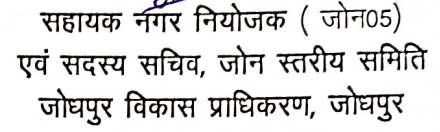 सहायक नगर नियोजक ( जोन05)
एवं सदस्य सचिव, जोन स्तरीय समिति
जोधपुर विकास प्राधिकरण, जोधपुर